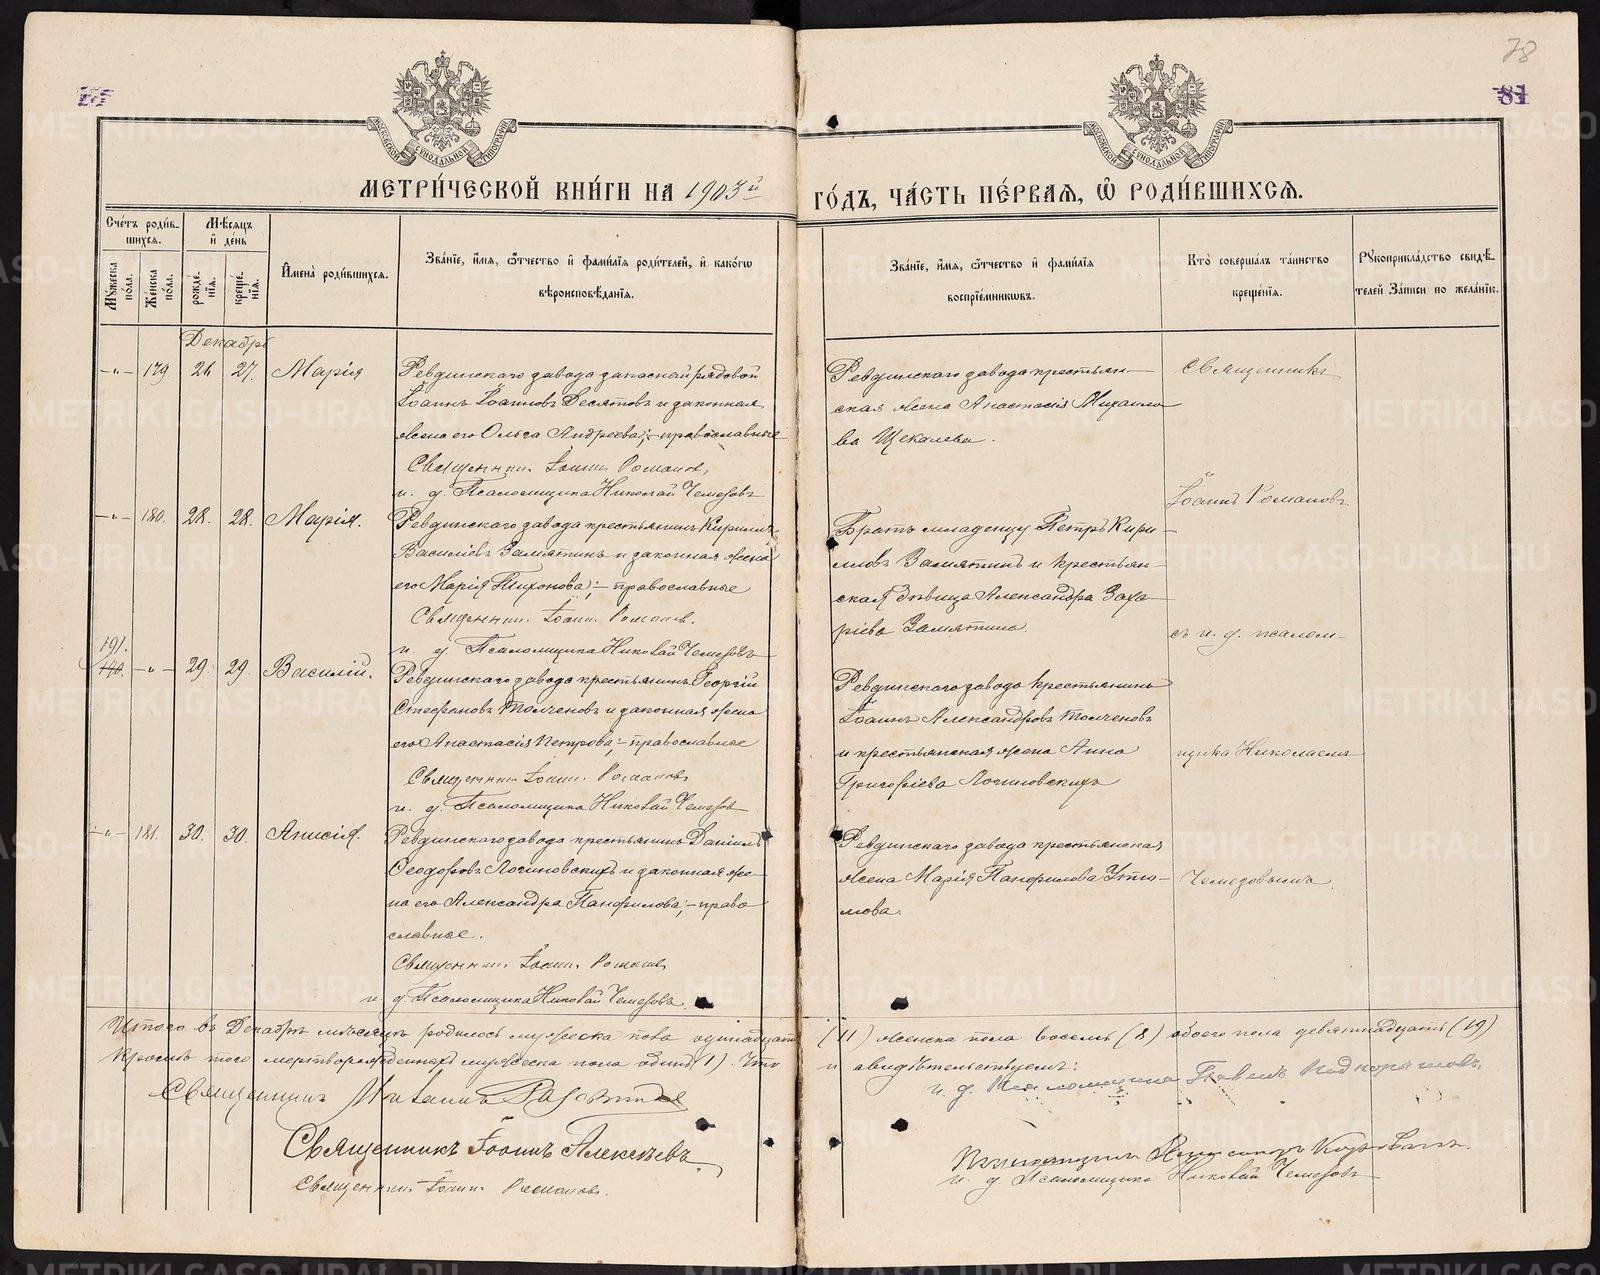 78
81
МЕТРИ́ЧЕСКОЙ КНИ́ГИ НА 1903й ГО́ДЪ, ЧА́СТЬ ПЕ́РВАЯ, Ѡ҆ РОДИ́ВШИХСЯ.
МОСКОВСКОЙ СѴНОДАЛЬНОЙ ТИПОГРАФІИ
МОСКОВСКОЙ СѴНОДАЛЬНОЙ ТИПОГРАФІИ
Сче́тъ роди́в-
шихся.
Мꙋ́жеска по́ла.
Же́нска по́ла.
Мѣ́сяцъ и҆ де́нь
рожде́-
нїя.
креще́-
нїя.
И҆мена̀ роди́вшихся.
Зва́нїе, и҆́мя, ѻ҆́тчество и҆ фами́лїя роди́телей, и҆ како́гѡ
вѣроисповѣ́данїя.
Зва́нїе, и҆́мя, ѻ҆́тчество и҆ фами́лїя
воспрїе́мникѡвъ.
Кто̀ соверша́лъ та́инство
креще́нїя.
Рꙋкоприкла́дство свидѣ́-
телей за́писи по жела́нїю.
Декабрь
-"- 179 26 27. Марія
Ревдинскаго завода запасный рядовой
Іоаннъ Іоанновъ Десятовъ и законная
жена его Ольга Андреева; – православные
Священник. Іоанн Романов,
и. д. Псаломщика Николай Чемезовъ
Ревдинскаго завода крестьян-
ская жена Анастасія Михаило
ва Щекалева.
Священникъ
Іоаннъ Романовъ
-"- 180. 28. 28. Марія.
Ревдинскаго завода крестьянинъ Кириллъ
Василіевъ Замятинъ и законная жена
его Марія Тихонова; – православные
Священник. Іоанн Романов.
и. д. Псаломщика Николай Чемезовъ
Братъ младенцу Петръ Кири-
лловъ Замятинъ и крестьян-
ская дѣвица Александра Заха-
ріева Замятина.
съ и. д. псалом-
191.
190. -"- 29. 29. Василій.
Ревдинскаго завода крестьянинъ Георгій
Стефановъ Толченовъ и законная жена
его Анастасія Петрова; – православные
Священник Іоанн Романовъ
и. д. Псаломщика Николай Чемезов
Ревдинскаго завода крестьянинъ
Іоаннъ Александровъ Толченовъ
и крестьянская жена Анна
Григоріева Логиновскихъ
щика Николаемъ
-"- 181. 30. 30. Анисія.
Ревдинскаго завода крестьянинъ Даніилъ
Ѳеодоровъ Логиновскихъ и законная же-
на его Александра Панфилова; – право
славные.
Священник. Іоанн. Романов,
и. д. Псаломщика Николай Чемезовъ.
Ревдинскаго завода крестьянская
жена Марія Панфилова
мова.
Чемезовымъ.
Итого въ Декабрѣ мѣсяцѣ родилось мужеска пола одинадцать (11) женска пола восемь (8) обоего пола девятнадцать (19)
Кромѣ того мертворожденныхъ мужеска пола одинъ (1). Что и свидѣтельствуемъ:
Священник
и. д. Псаломщика Павелъ
Священникъ Іоаннъ Алексѣевъ.
Псаломщикъ
Священник Іоанн Романов.
и. д. Псаломщика Николай Чемезовъ
METRIKI.GASO-URAL.RU